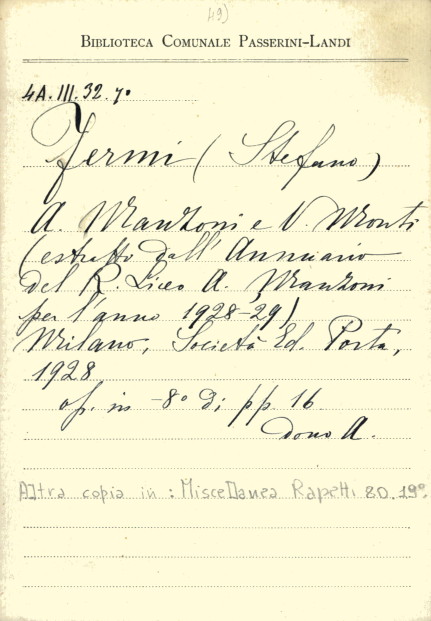 49)
BIBLIOTECA COMUNALE PASSERINI-LANDI
4A.III.32.7°
Fermi (Stefano)
A. Manzoni e V. Monti
(estratto dall'Annuario
del R. Liceo A. Manzoni
per l'anno 1928-29)
Milano, Società Ed. Porta,
1928
op. in -8° di pp. 16
dono A.
Altra copia in : Miscellanea Rapetti 80.19°.